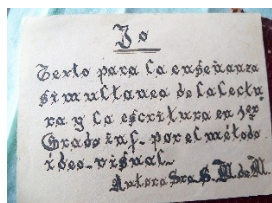 Yo
Texto para la enseñanza
simultanea de la lectu-
ra y la escritura en 1er
Grado inf. por el método
ideo-visual.
Autora Sra. S. U. de U.